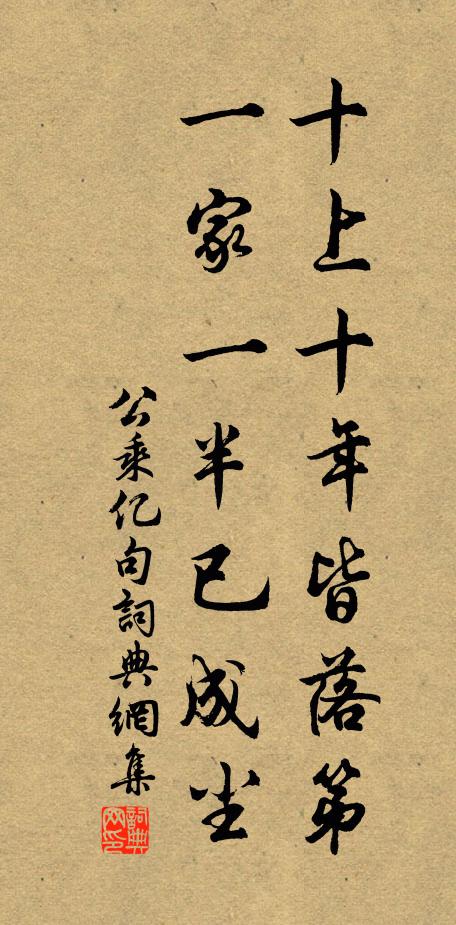 十上十年皆落第
一家一半已成尘
公乘亿句詞典網集
詞典网印